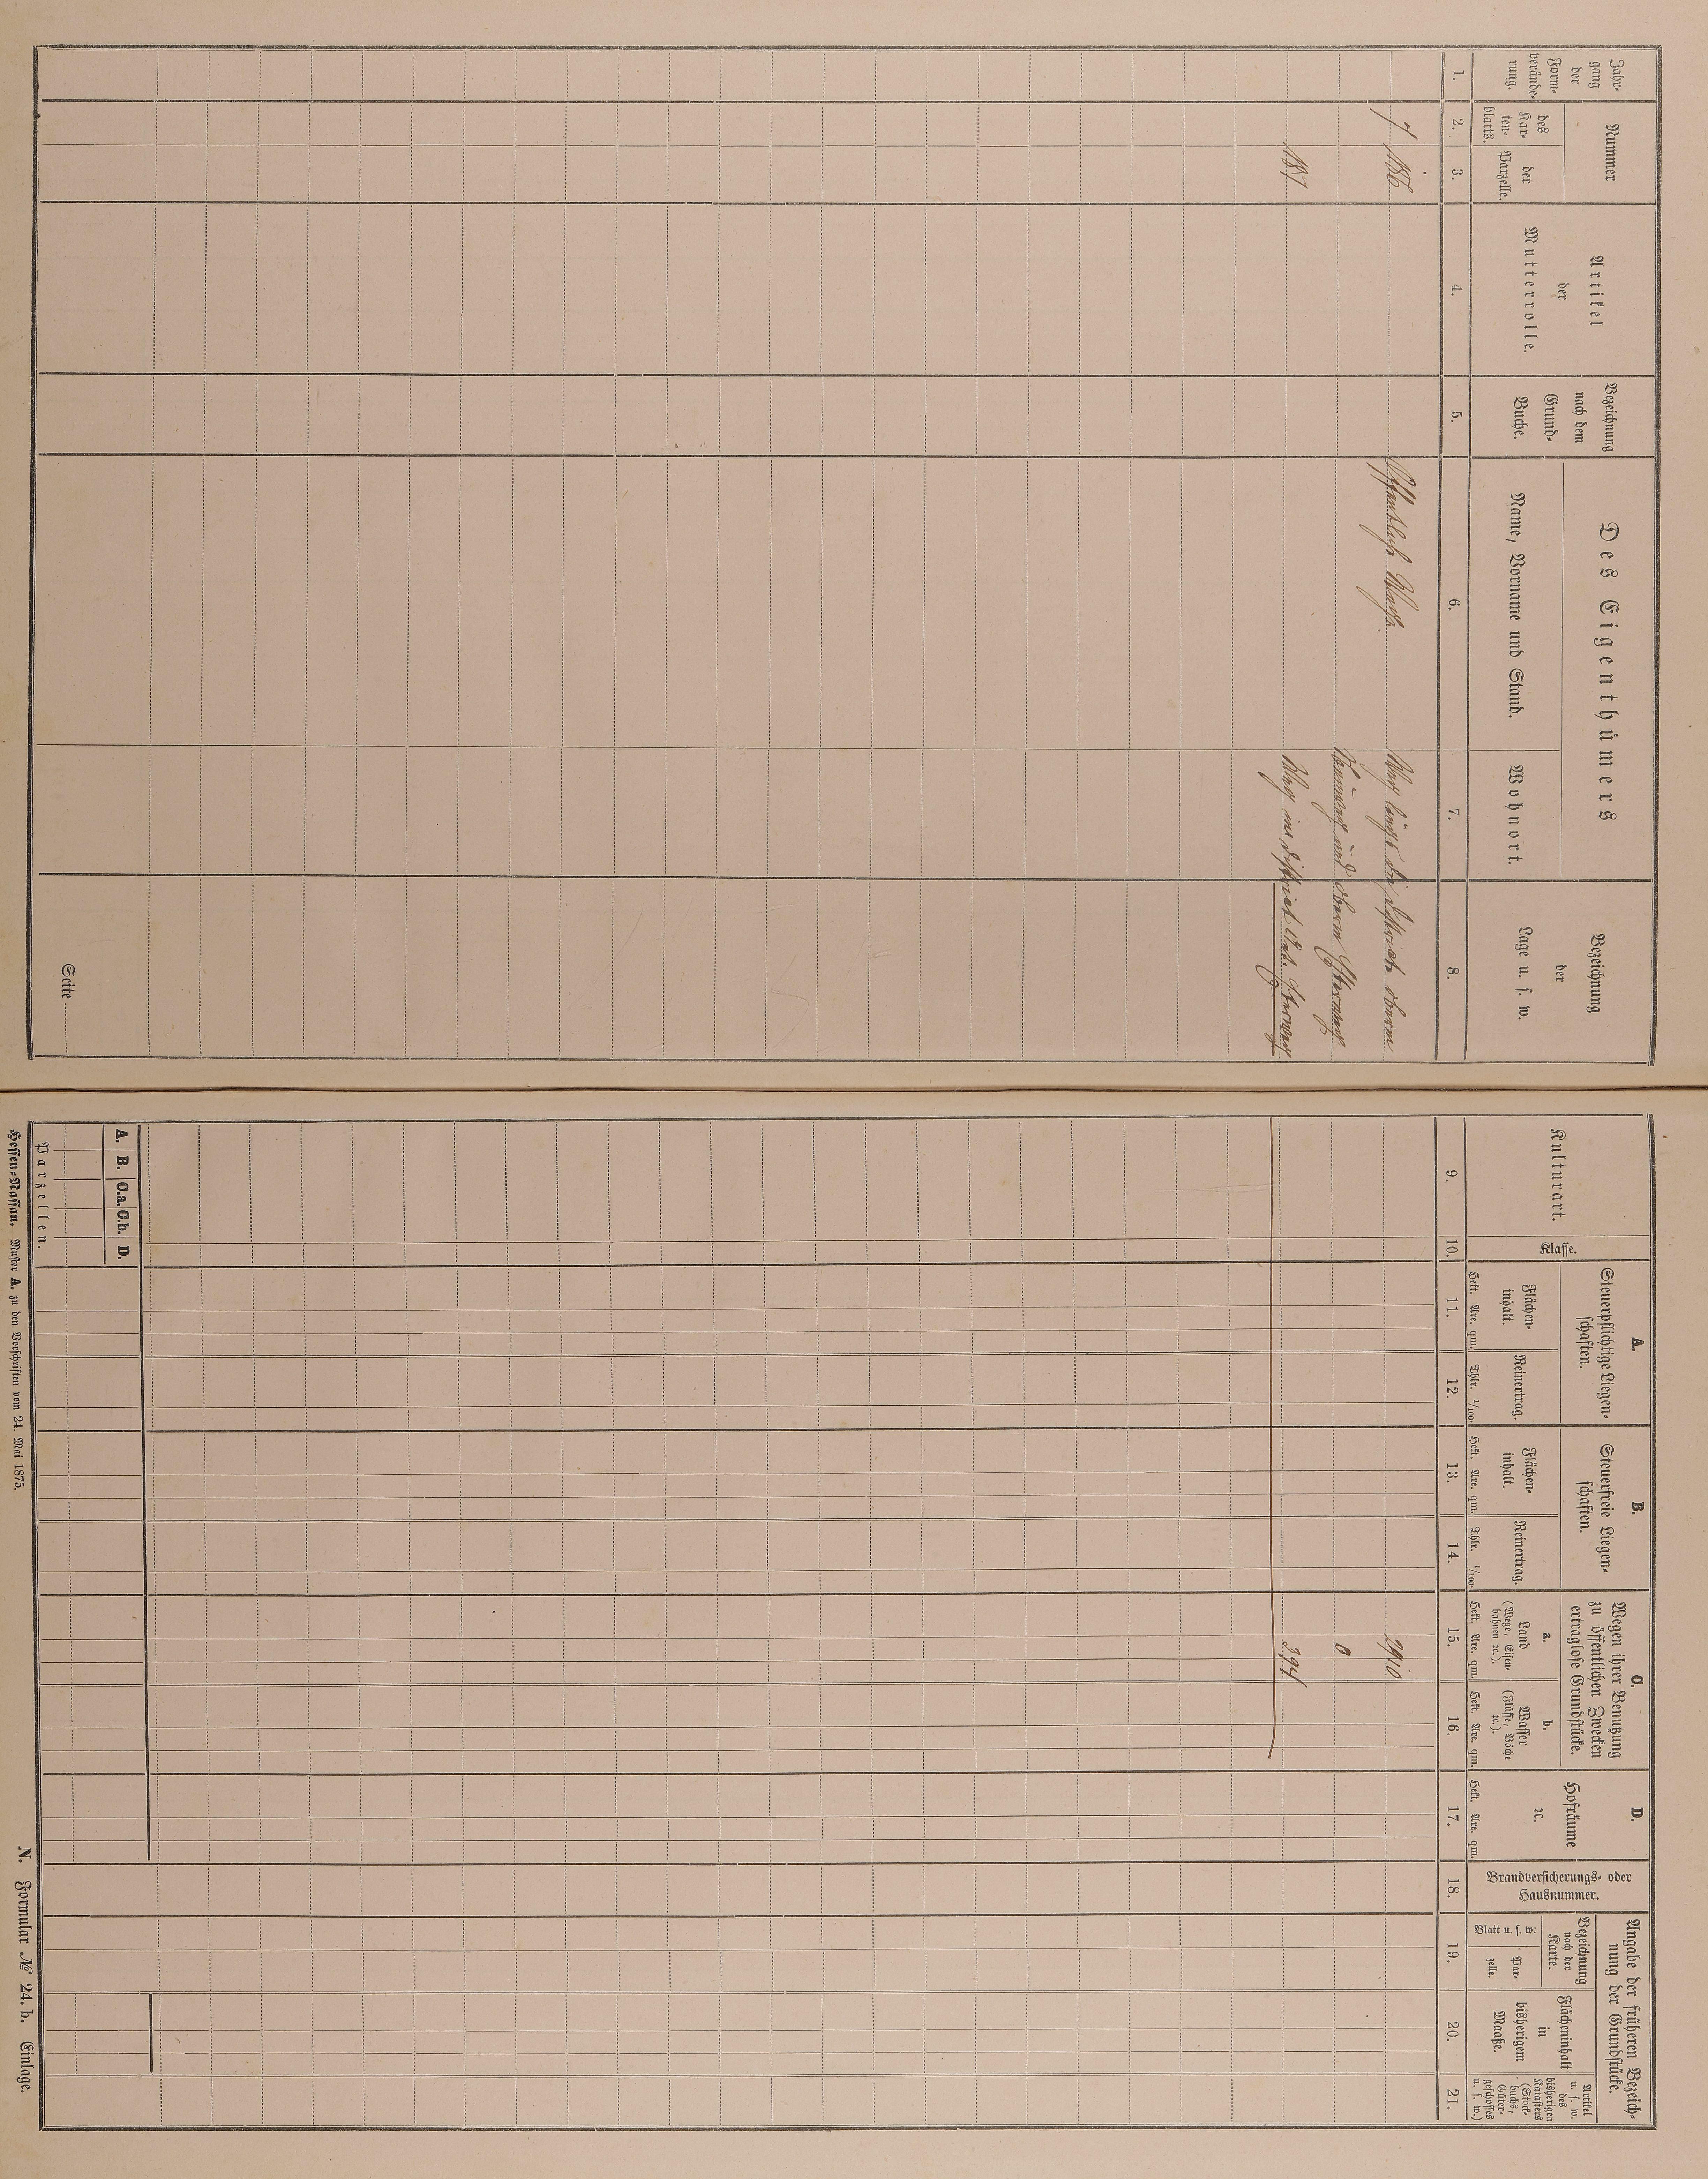 Jahr-
gang
der
Form-
verände-
rung.
Nummer
des
Kar-
ten-
blatts.
der
Parzelle.
Artikel
der
Mutterrolle.
Bezeichnung
nach dem
Grund-
Buche.
Des Eigenthümers
Name, Vorname und Stand.
Wohnort.
Bezeichnung
der
Lage u. s. w.
1. 2. 3. 4. 5. 6. 7. 8.
7 186 Öffentliche Wege. Weg längs den District oberm
und oberm
187 Weg im District
Seite
Kulturart.
Klasse.
A.
Steuerpflichtige Liegen-
schaften.
Flächen-
inhalt.
Hekt. Are. qm.
Reinertrag.
Thlr. 1/100.
B.
Steuerfreie Liegen-
schaften.
Flächen-
inhalt.
Hekt. Are. qm.
Reinertrag.
Thlr. 1/100.
C.
Wegen ihrer Benutzung
zu öffentlichen Zwecken
ertraglose Grundstücke.
a.
Land
(Wege, Eisen-
bahnen ꝛc.).
Hekt. Are. qm.
b.
Wasser
(Flüsse, Bäche
ꝛc.).
Hekt. Are. qm.
D.
Hofräume
ꝛc.
Hekt. Are. qm.
Brandversicherungs- oder
Hausnummer.
Angabe der früheren Bezeich-
nung der Grundstücke.
Bezeichnung
nach der
Karte.
Blatt u. s. w:
Par-
zelle.
Flächeninhalt
in
bisherigem
Maaße.
Artikel
u. s. w.
des
bisherigen
Katasters
(Stock-
buchs,
Güter-
geschosses
u. s. w.)
9. 10. 11. 12. 13. 14. 15. 16. 17. 18. 19. 20. 21.
29 10
0
3 94
A. B. C.a. C.b. D.
Parzellen.
Hessen-Nassau. Muster A. zu den Vorschriften vom 24. Mai 1875.
N. Formular № 24. b. Einlage.